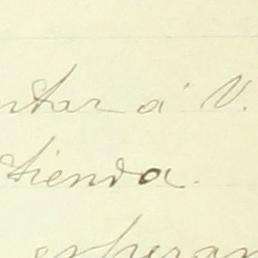 ntar á V.
tienda.
esperan